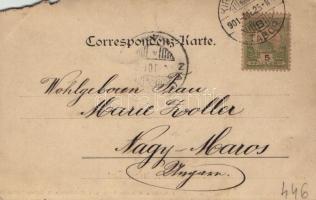 Correspondenz-Karte.
Wohlgeboren Frau
Marie Zoller
Nagy-Maros
Ungarn
5
446